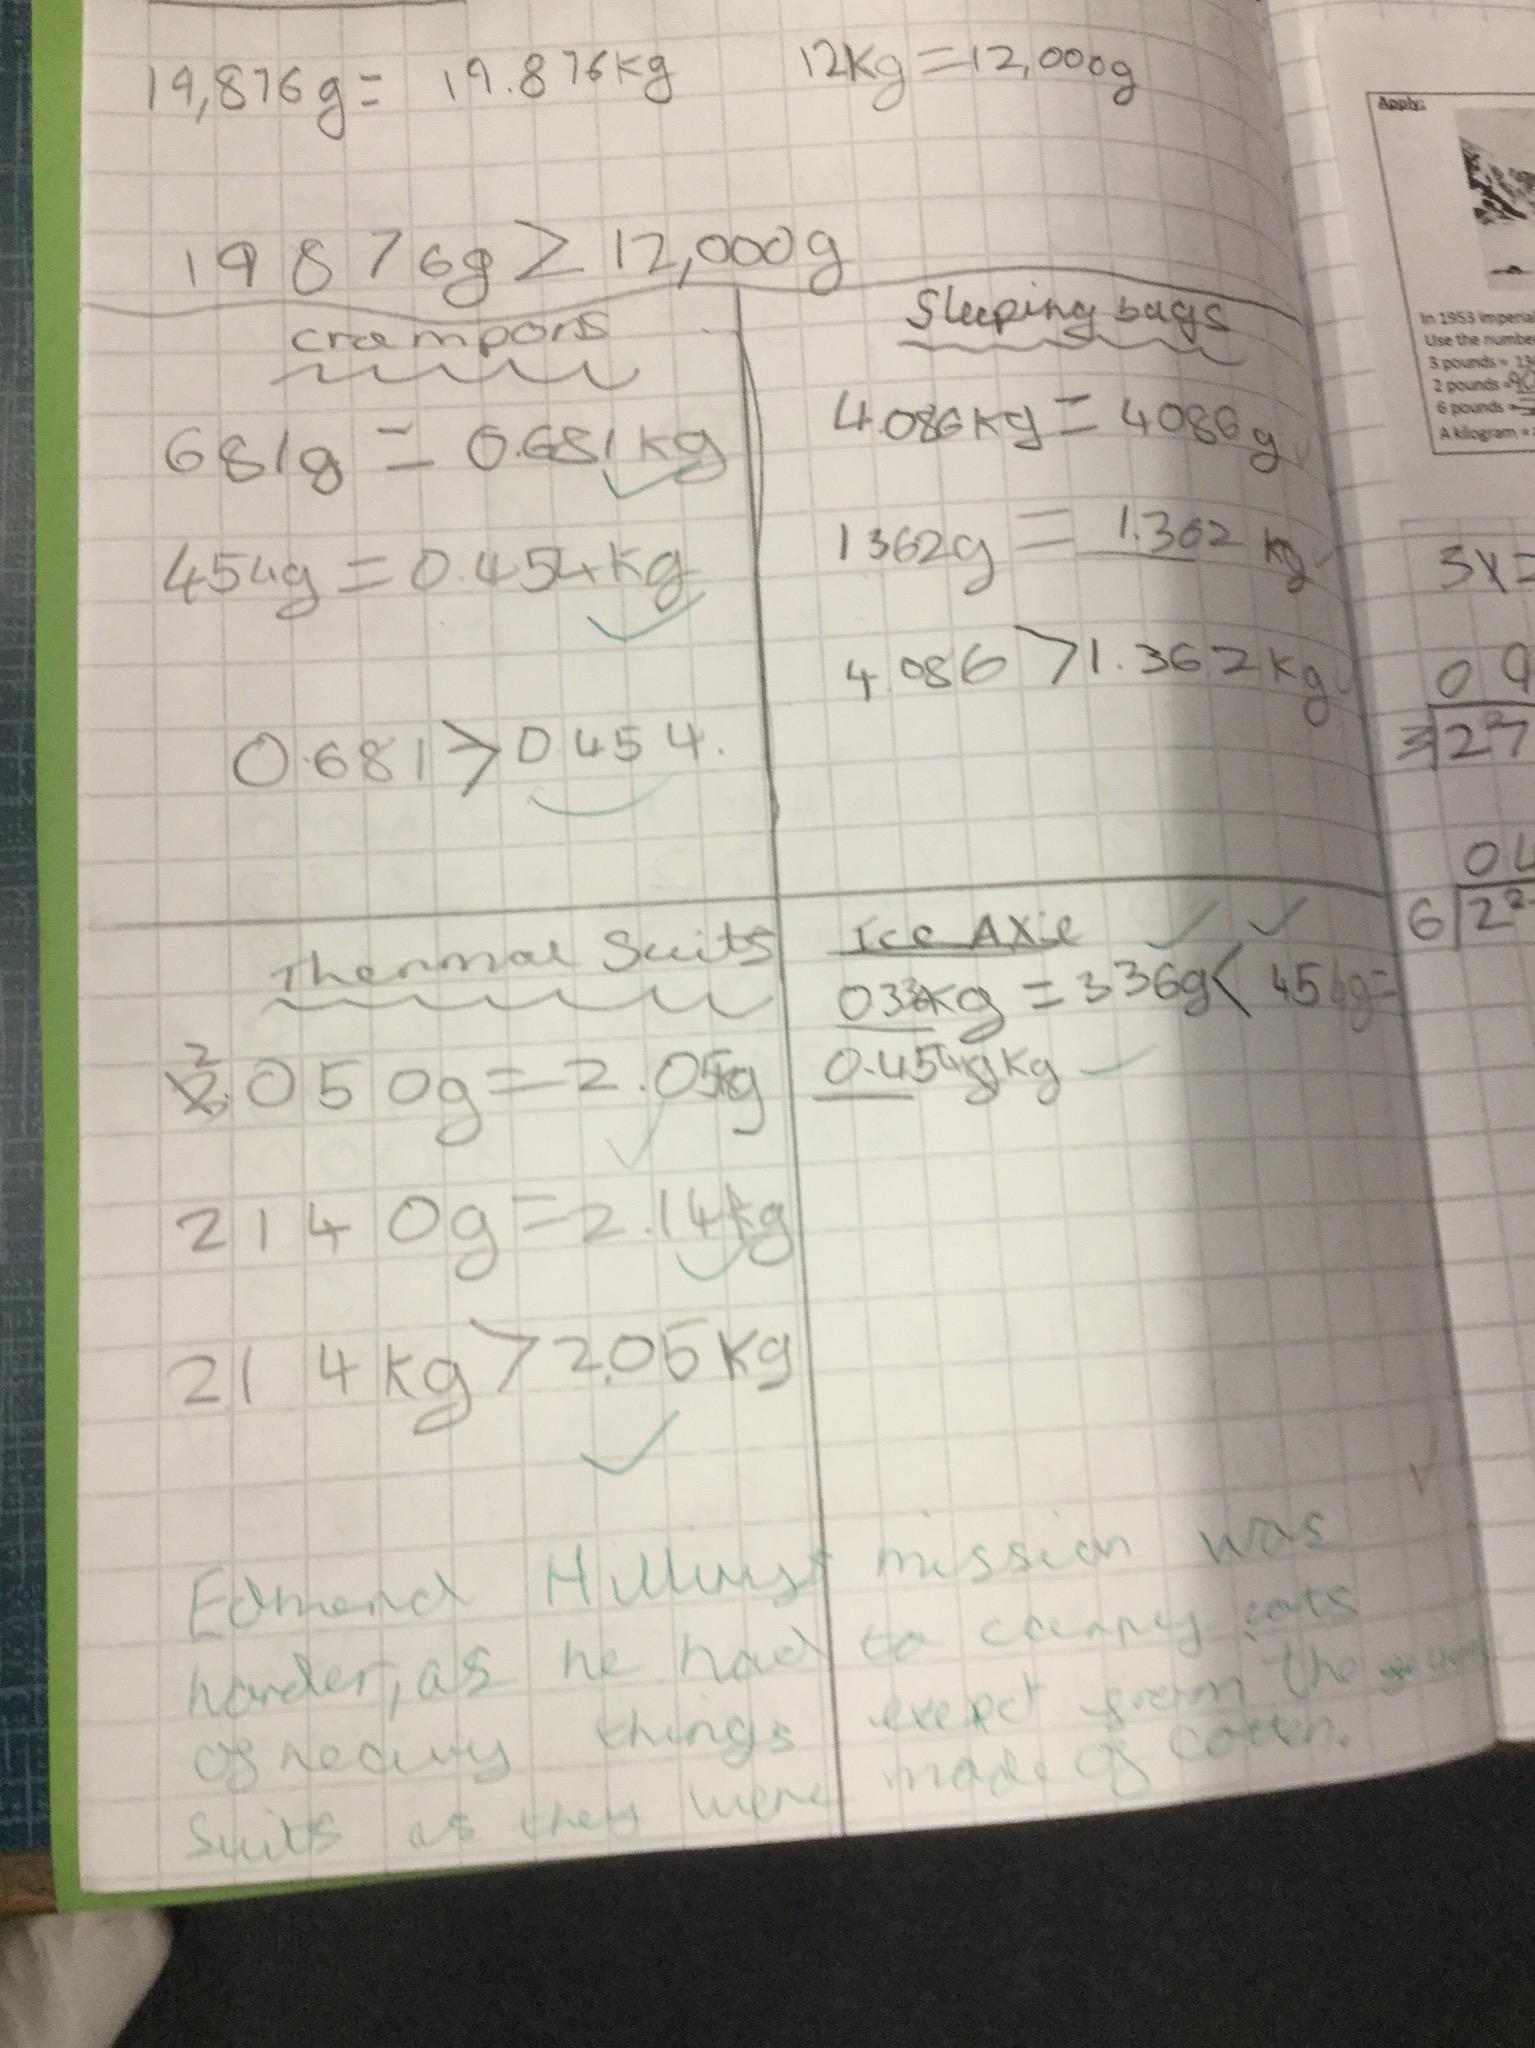 19,876g = 19.876kg 12kg = 12,000g
19876g > 12,000g
crampons
681g = 0.681kg
454g = 0.454kg
0.681 > 0.454.
Sleeping bags
4.086kg = 4086g
1362g = 1.362 kg
4 086 > 1.362kg
Thermal Suits
2050g = 2.05kg
2140g = 2.14kg
2.14kg > 2.05kg
Ice Axie
0336kg = 336g < 454g =
0.454gkg
Edmend Hillurys mission was
harder, as he had to carry
of heavy things exept from the
Suits as they were made of cotten.
Apply:
In 1953 imperial
Use the numbe
3 pounds = 13
2 pounds =
6 pounds =
A kilogram =
3x=
0 9
3 27
04
6 22